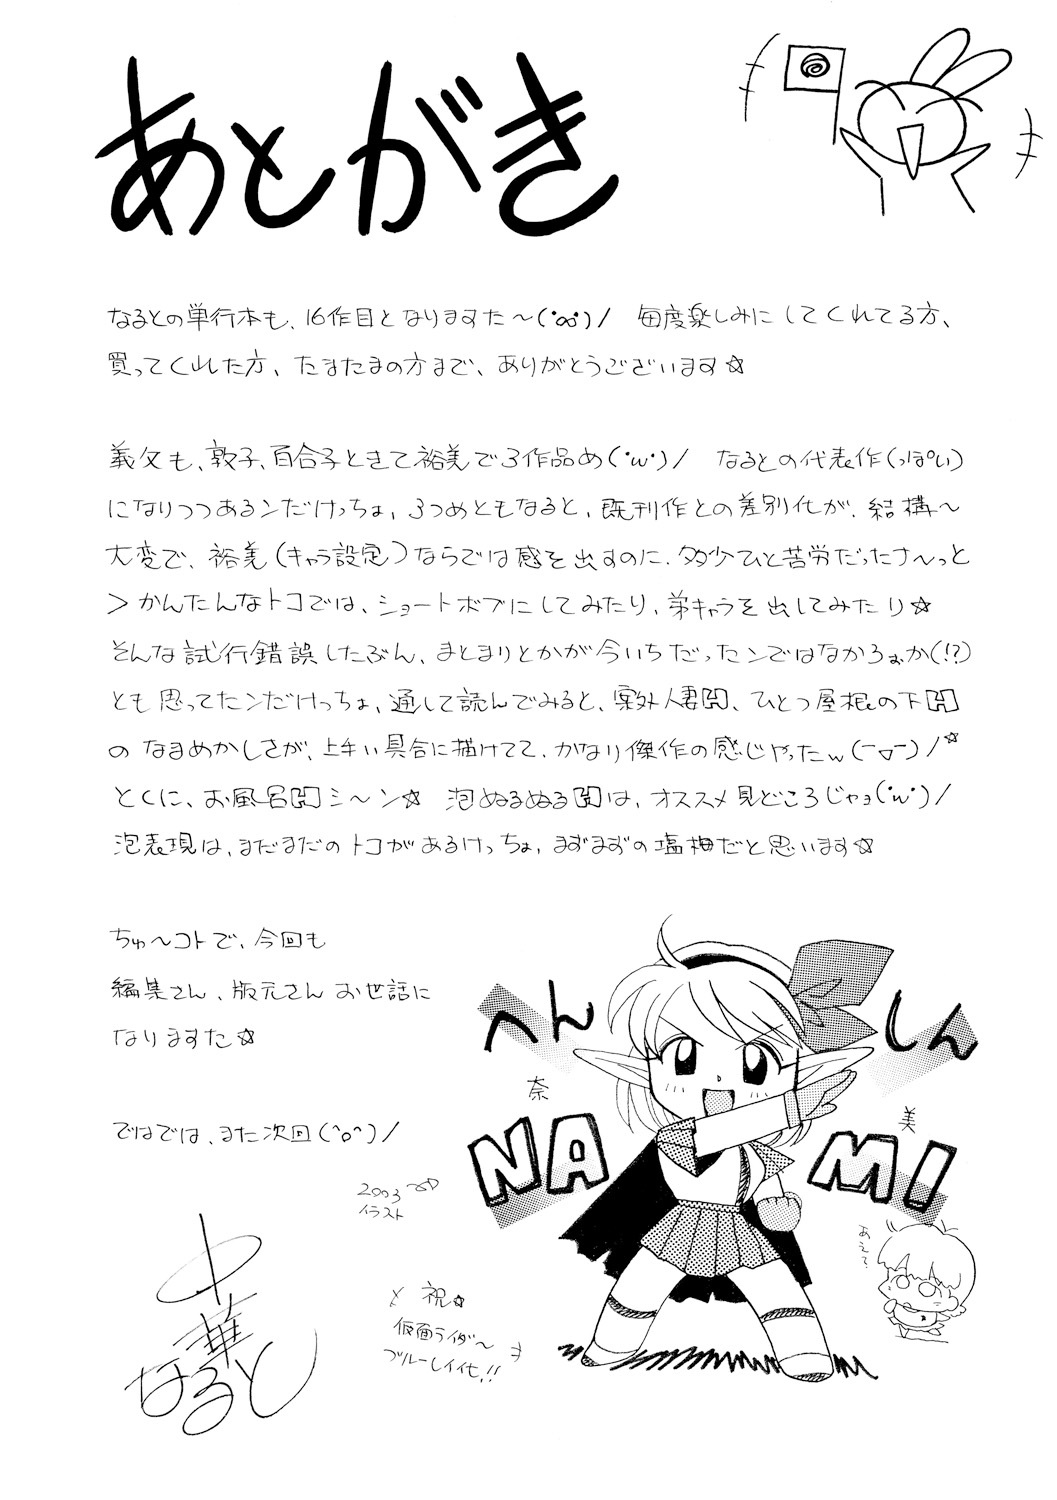 あとがき
なるとの単行本も、16作目となりますた～(°∞°)/ 毎度楽しみにしてくれてる方、
買ってくれた方、たまたまの方まで、ありがとうございます☆
義父も、敦子、百合子ときて裕美で3作品め('ω')/ なるとの代表作(っぽい)
になりつつあるンだけっちょ、3つめともなると、既刊作との差別化が、結構～
大変で、裕美(キャラ設定)ならでは感を出すのに、多少ひと苦労だったナ～っと
>かんたんなトコでは、ショートボブにしてみたり、弟キャラを出してみたり☆
そんな試行錯誤したぶん、まとまりとかが今いちだったンではなかろぉか(!?)
とも思ってたンだけっちょ、通して読んでみると、案外人妻H、ひとつ屋根の下H
のなまめかしさが、上手い具合に描けてて、かなり傑作の感じやったw(￣▽￣)/☆
とくに、お風呂Hシ～ン☆ 泡ぬるぬるHは、オススメ見どころじゃョ('ω')/
泡表現は、まだまだのトコがあるけっちょ、まずまずの塩梅だと思います☆
ちゅ～コトで、今回も
編集さん、版元さんお世話に
なりますた☆
ではでは、また次回(^o^)/
へんしん
奈美
NAMI
2003
イラスト
あえて?
祝☆
仮面ライダ～
ブルーレイ化!!
中華
なると